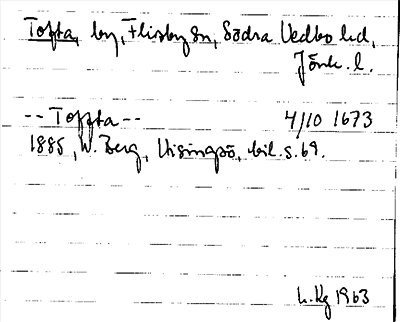 Tofta, by, Flisby sn, Södra Vedbo hd,
Jönk. l.
-- Toffta -- 4/10 1673
1885, W. Berg, Visingsö, bil. s. 69.
L. Hg 1963